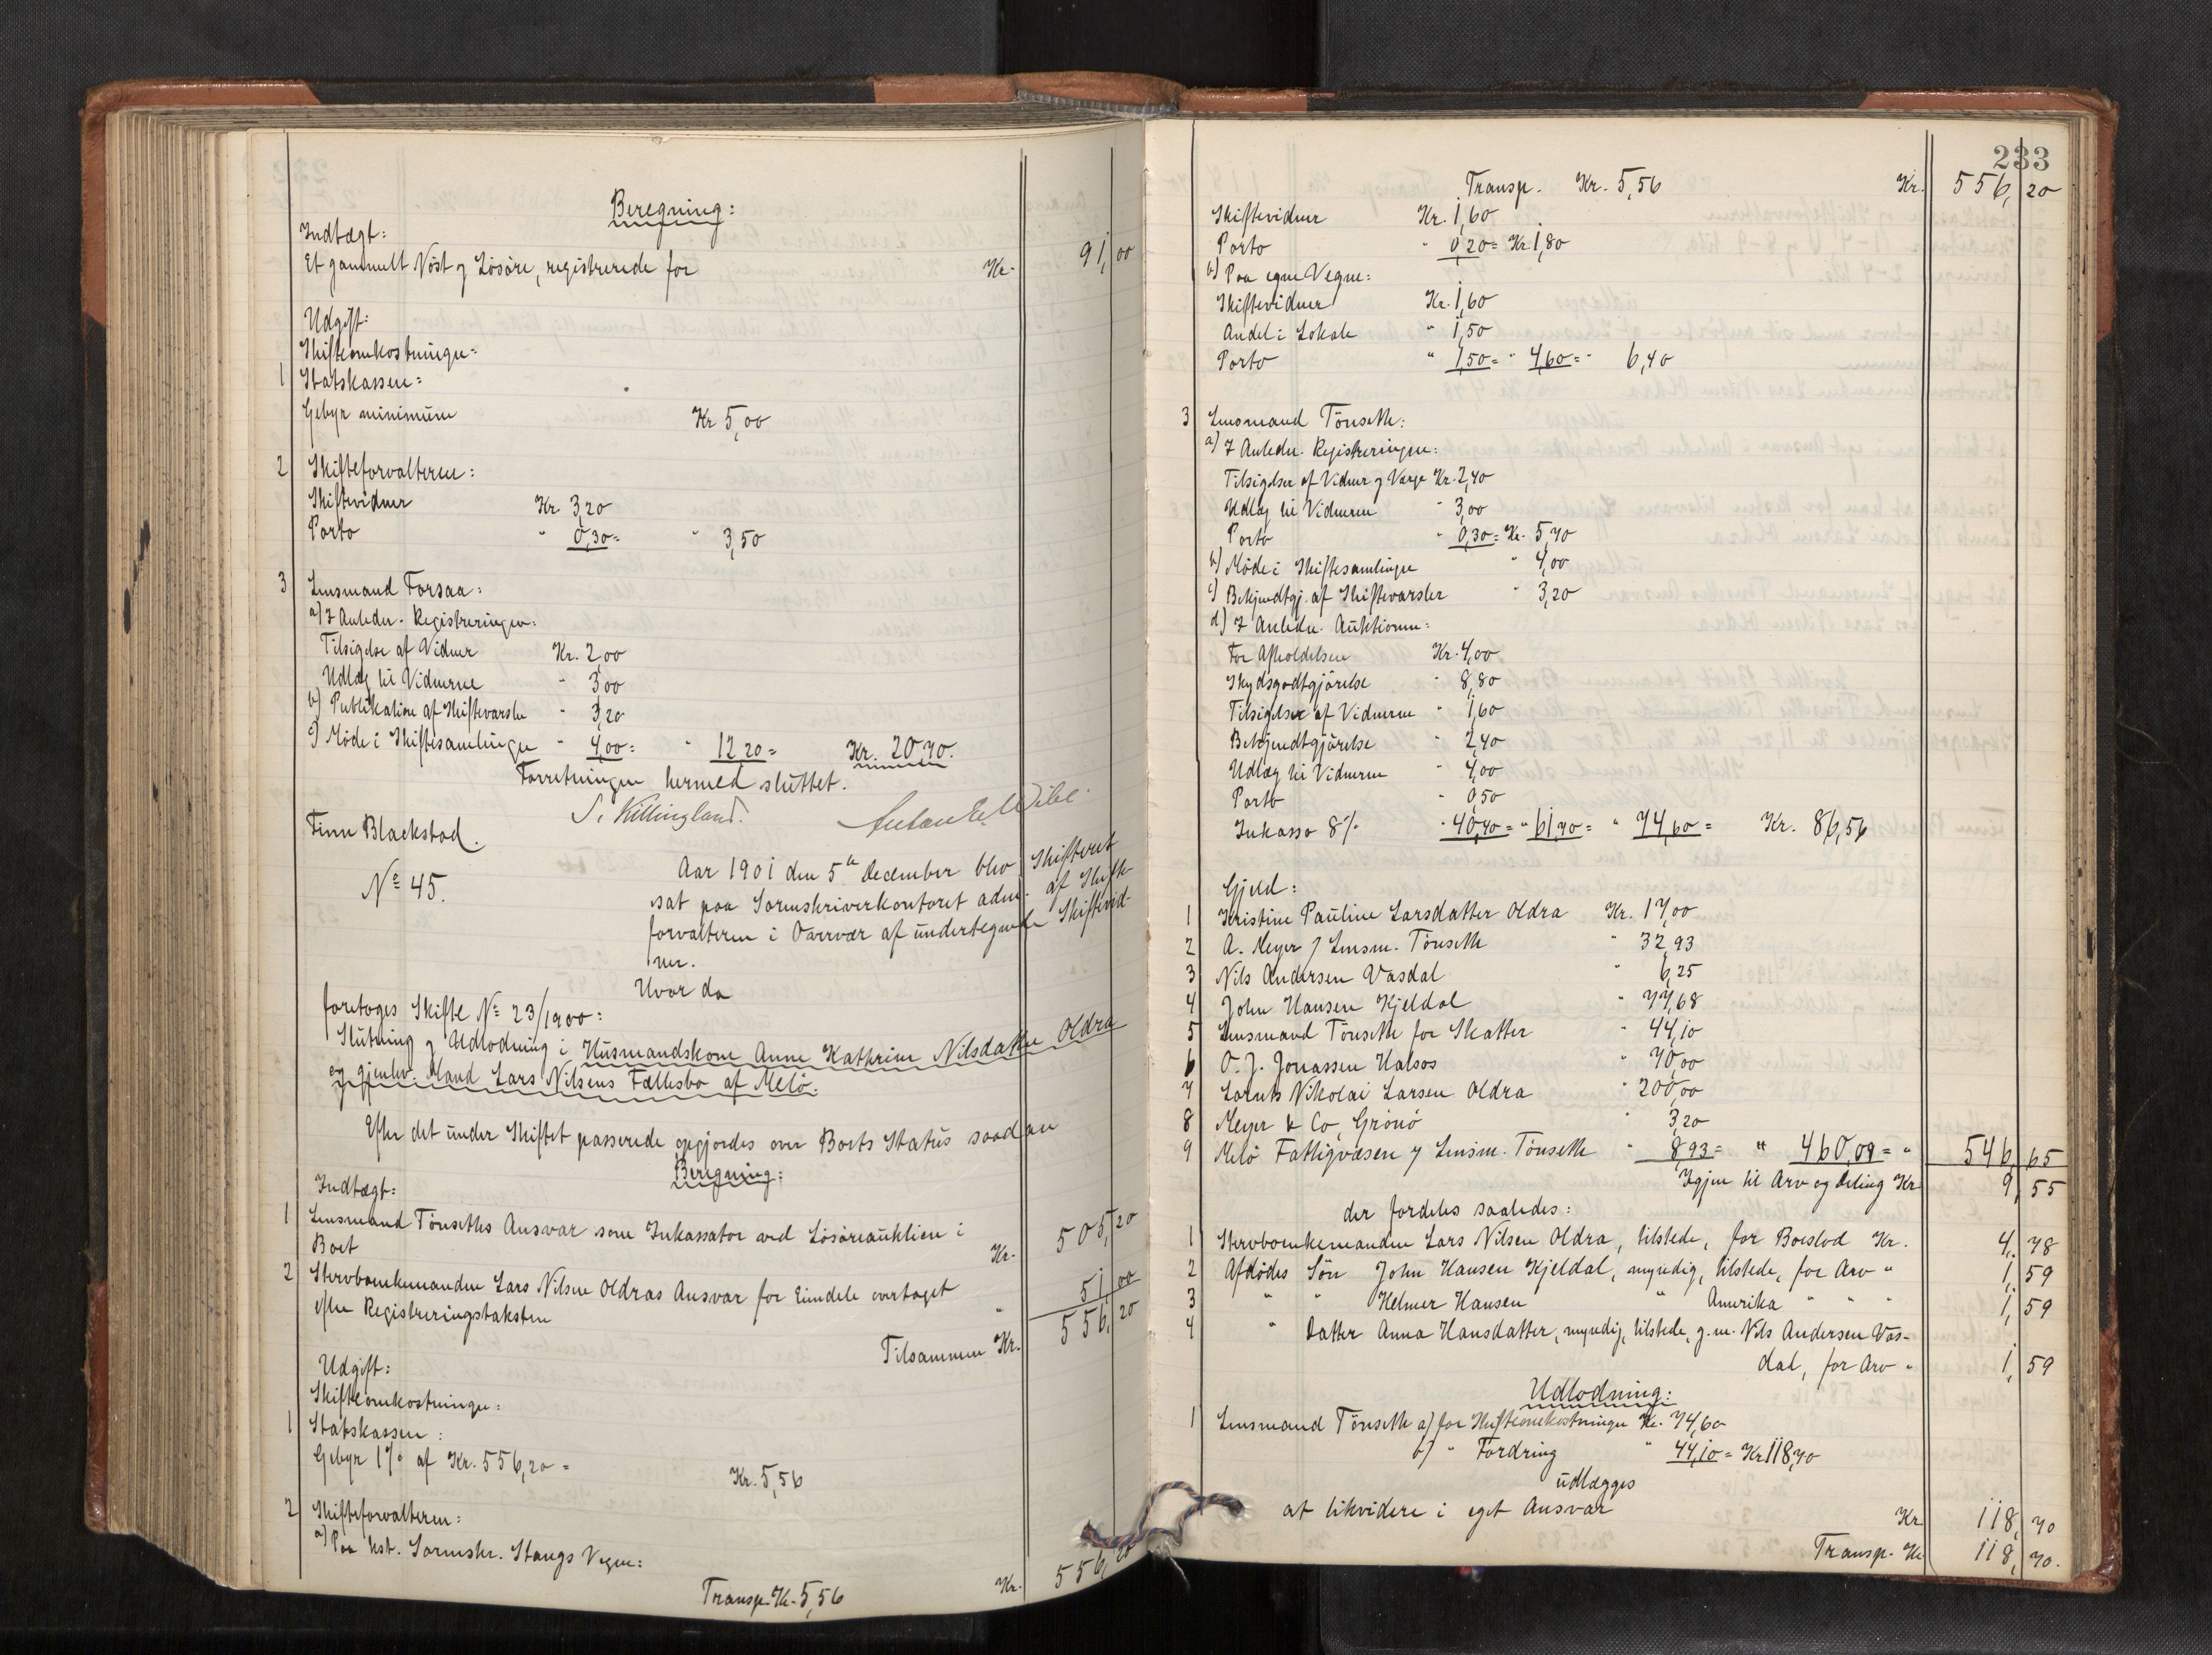 Beregning:
Indtægt:
Et gammelt Nöst og Lösöre, registrerede for Kr. 91,00
Udgift:
Skifteomkostninger:
1 Statskassen:
Gebyr minimum Kr 5,00
2 Skifteforvalteren:
Skiftevidner Kr 3,20
Porto " 0,30 = " 3,50
3 Lensmand Forsaa:
a) I Anledn. Registreringen:
Tilsigelse af Vidner Kr. 2,00
Udlæg til Vidnerne " 3,00
b) Publikation af Skiftevarsler " 3,20
c) Möde i Skiftesamlingen " 4,00 = " 12,20 = Kr. 20,70.
Forretningen hermed sluttet.
S. Killingland.
Finn Blackstad.
No 45.
Aar 1901 den 5te December blev Skifteret
sat paa Sorenskriverkontoret adm. af Skifte-
forvalteren i Overvær af undertegnede Skiftevid-
ner.
Hvor da
foretoges Skifte No 23/1900:
Slutning og Udlodning i Husmandskone Anne Kathrine Nilsdatter Oldra
og gjenlev. Mand Lars Nilsens Fællesbo af Melö.
Efter det under Skiftet passerede opgjordes over Boets Status saadan
Beregning:
Indtægt:
1 Lensmand Tönseths Ansvar som Inkassator ved Lösöreauktion i
Boet Kr. 505,20
2 Stervboenkemanden Lars Nilsen Oldras Ansvar for Eiendele overtaget
efter Registreringstaksten " 51,00
Tilsammen Kr. 556,20
Udgift:
Skifteomkostninger:
1 Statskassen:
Gebyr 1% af Kr. 556,20 = Kr. 5,56
2 Skifteforvalteren:
a) Paa kst. Sorenskr. Stangs Vegne:
Transp. Kr. 5,56 Kr. 556,20
233
Transp. Kr. 5,56 Kr. 556,20
Skiftevidner Kr. 1,60
Porto " 0,20 = Kr. 1,80
b) Paa egne Vegne:
Skiftevidner Kr. 1,60
Andel i Lokale " 1,50
Porto " 1,50 = " 4,60 = " 6,40
3 Lensmand Tönseth:
a) I Anledn. Registreringen:
Tilsigelse af Vidner og Værge Kr. 2,40
Udlæg til Vidnerne " 3,00
Porto " 0,30 = Kr. 5,70
b) Möde i Skiftesamlingen " 4,00
c) Bekjendtgj. af Skiftevarsler " 3,20
d) I Anledn. Auktionen:
For Afholdelsen Kr. 4,00
Skydsgodtgjörelse " 8,80
Tilsigelse af Vidnerne " 1,60
Bekjendtgjörelse " 2,40
Udlæg til Vidnerne " 4,00
Porto " 0,50
Inkasso 8% " 40,40 = " 61,70 = " 74,60 = Kr. 86,56
Gjeld:
1 Kristine Pauline Larsdatter Oldra Kr. 17,00
2 A. Meyer v/ Lensm. Tönseth " 32,93
3 Nils Andersen Vasdal " 6,25
4 John Hansen Kjeldal " 77,68
5 Lensmand Tönseth for Skatter " 44,10
6 O. J. Jonassen Halsos " 70,00
7 Lorents Nikolai Larsen Oldra " 200,00
8 Meyer & Co, Grönö " 3,20
9 Melö Fattigvæsen v/ Lensm. Tönseth " 8,93 = " 460,09 = " 546,65
Igjen til Arv og Deling Kr. 9,55
der fordeles saaledes:
1 Stervboenkemanden Lars Nilsen Oldra, tilstede, for Boeslod Kr. 4,78
2 Afdödes Sön John Hansen Kjeldal, myndig, tilstede, for Arv " 1,59
3 " " Helmer Hansen " Amerika " " " 1,59
4 " Datter Anna Hansdatter, myndig, tilstede, g. m. Nils Andersen Vas-
dal, for Arv " 1,59
Udlodning:
1 Lensmand Tönseth a) for Skifteomkostninger Kr. 74,60
b) " Fordring " 44,10 = Kr 118,70
udlægges
at likvidere i eget Ansvar Kr. 118,70
Transp. Kr. 118,70.